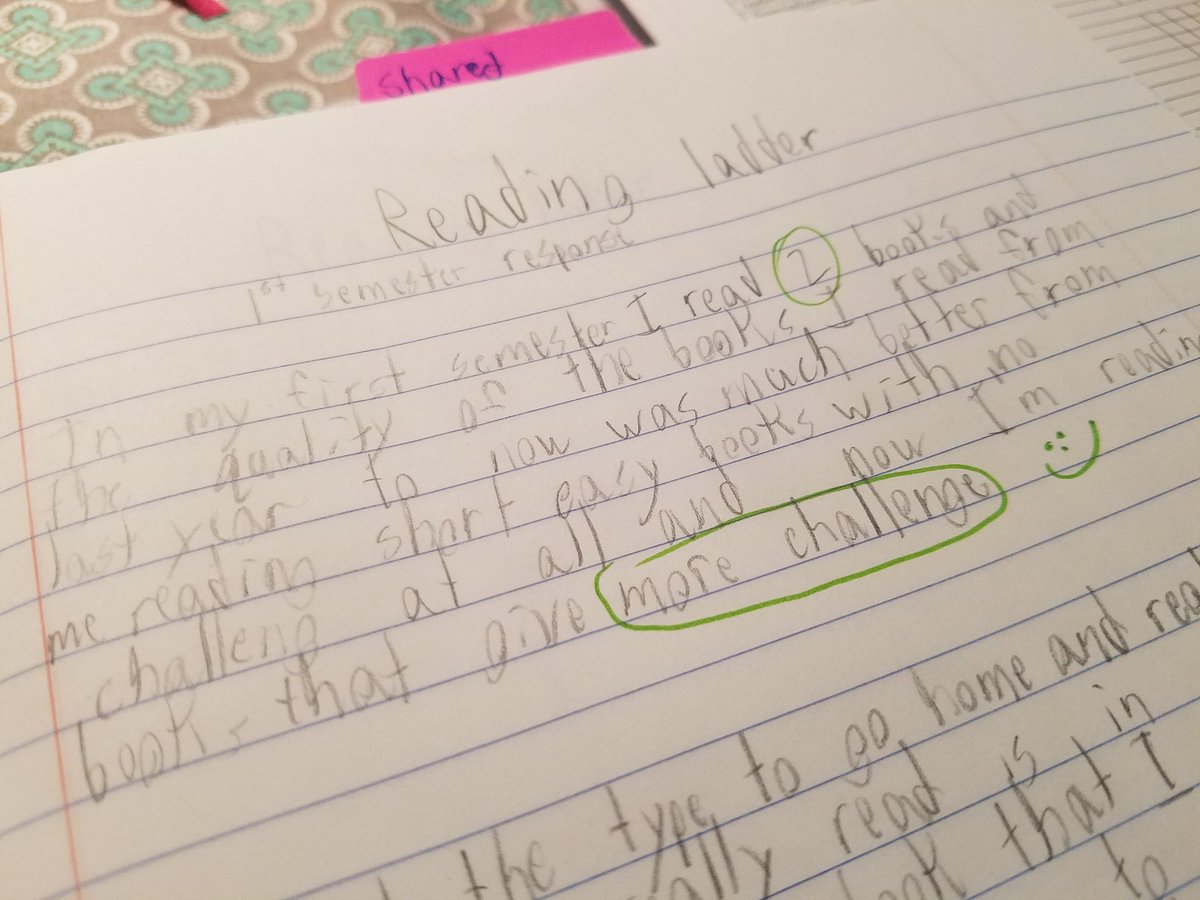 shared
Reading ladder
1st semester response
In my first semester I read 2 books and
the quality of the books I read from
last year to now was much better from
me reading short easy books with no
challeng at all and now I'm reading
books that give more challenge :)
the type to go home and
read is in
that I
to